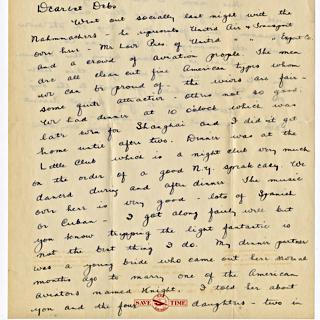 Dearest Debs
Went out socially last night with the
over here - Mr Loir Pres. of United " " Export Co.
and a crowd of aviation people. The men
are all clean cut fine American types whom
we can be proud of - the wives are fair -
some quite attractive others not so good.
We had dinner at 10 o'clock which was
late even for Shanghai and I did not get
home until after two. Dinner was at the
Little Club which is a night club very much
on the order of a good N.Y. speak easy. We
danced during and after dinner. The music
over here is very good - lots of Spanish
or Cuban - I got along fairly well but
you know tripping the light fantastic is
not the best thing I do. My dinner partner
was a young bride who came out here
months ago to marry one of the American
aviators named Knight. I told her about
you and the four daughters - two in
SAVE TIME